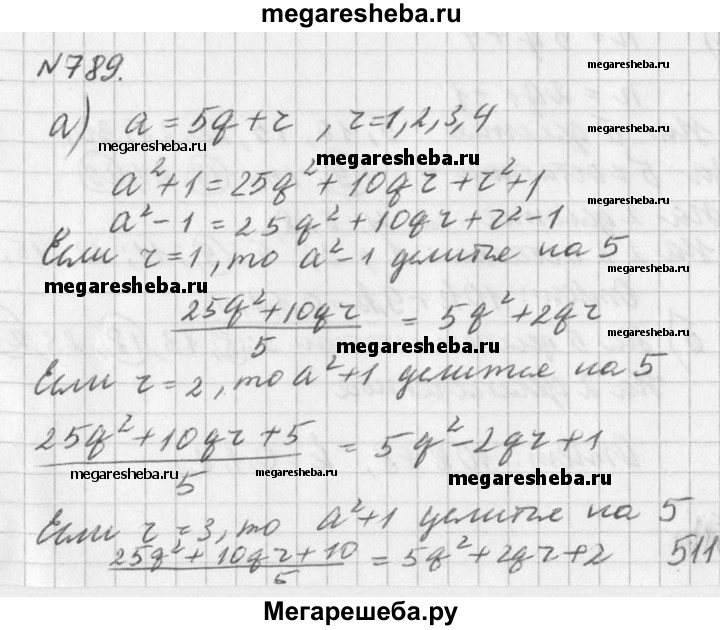 megaresheba.ru
N789.
megaresheba.ru
megaresheba.ru
а) a = 5q + r , r = 1, 2, 3, 4
megaresheba.ru
megaresheba.ru
megaresheba.ru
a²+1 = 25q² + 10qr + r²+1
megaresheba.ru
a²-1 = 25q² + 10qr + r²-1
Если r = 1, то a²-1 делится на 5
megaresheba.ru
megaresheba.ru
25q²+10qr / 5 = 5q²+2qr
megaresheba.ru
megaresheba.ru
Если r = 2, то a²+1 делится на 5
25q²+10qr+5 / 5 = 5q²-2qr+1
megaresheba.ru
megaresheba.ru
megaresheba.ru
Если r = 3, то a²+1 делится на 5
25q²+10qr+10 / 5 = 5q²+2qr+2
511
Мегарешеба.ру